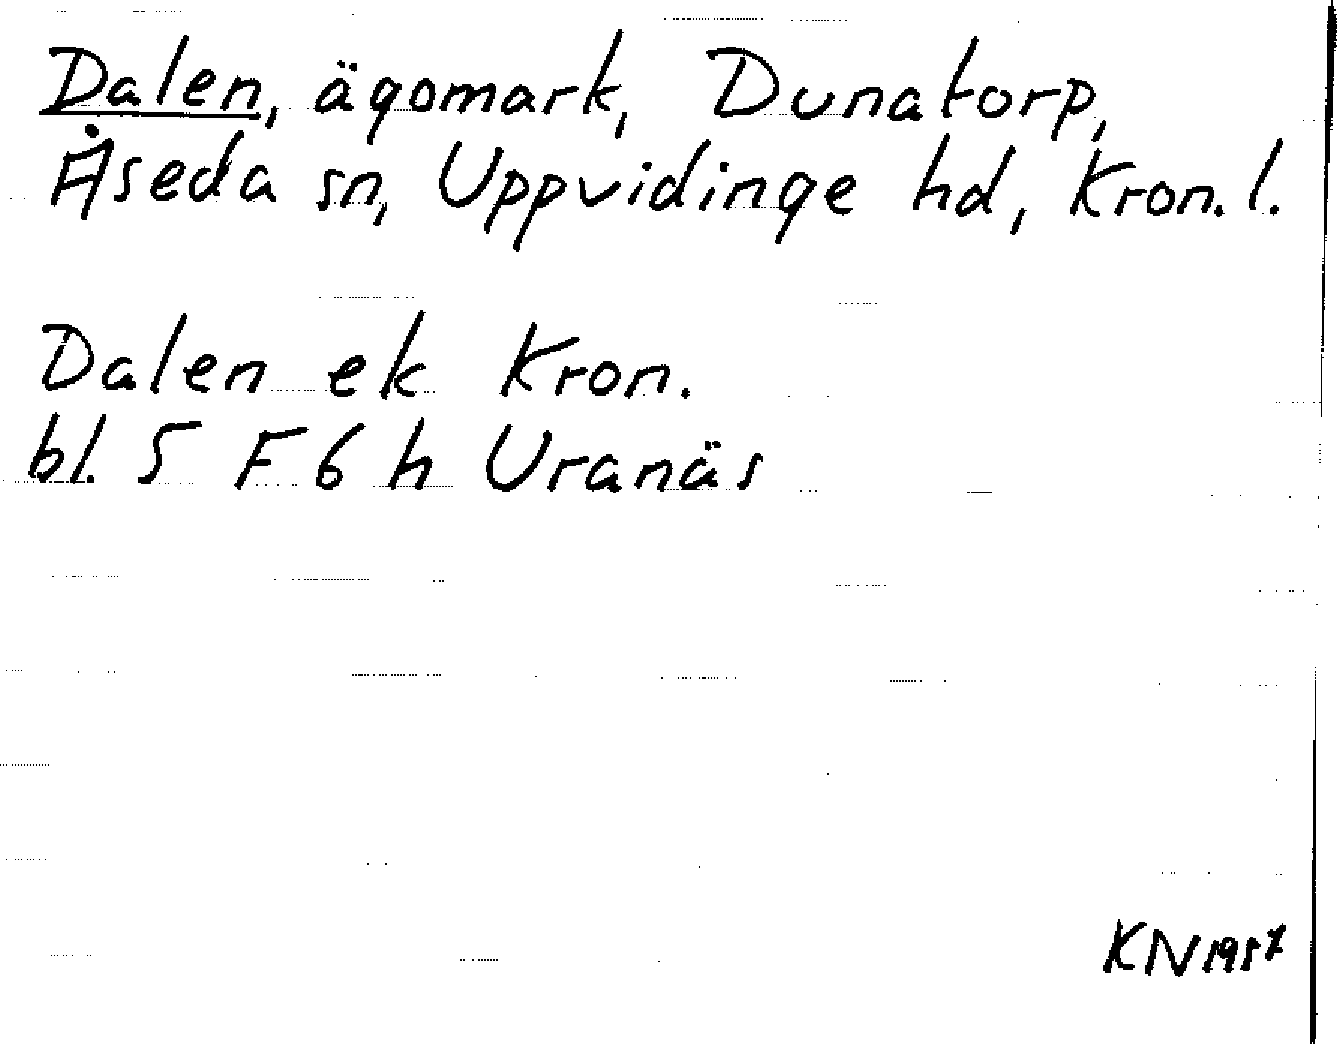 Dalen, ägomark, Dunatorp,
Åseda sn, Uppvidinge hd, Kron. l.
Dalen ek Kron.
bl. 5 F 6 h Uranäs
KN 1957